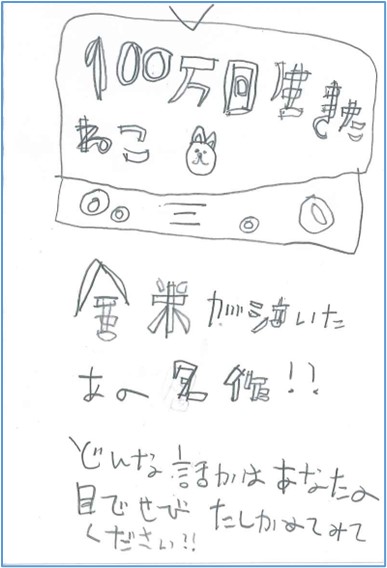 100万回生きた
ねこ
全米が泣いた
あの名作!!
どんな話かはあなたの
目でぜひ たしかめてみて
ください!!